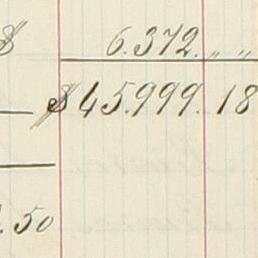 $ 6.372. „ „
$45.999. 18
.50